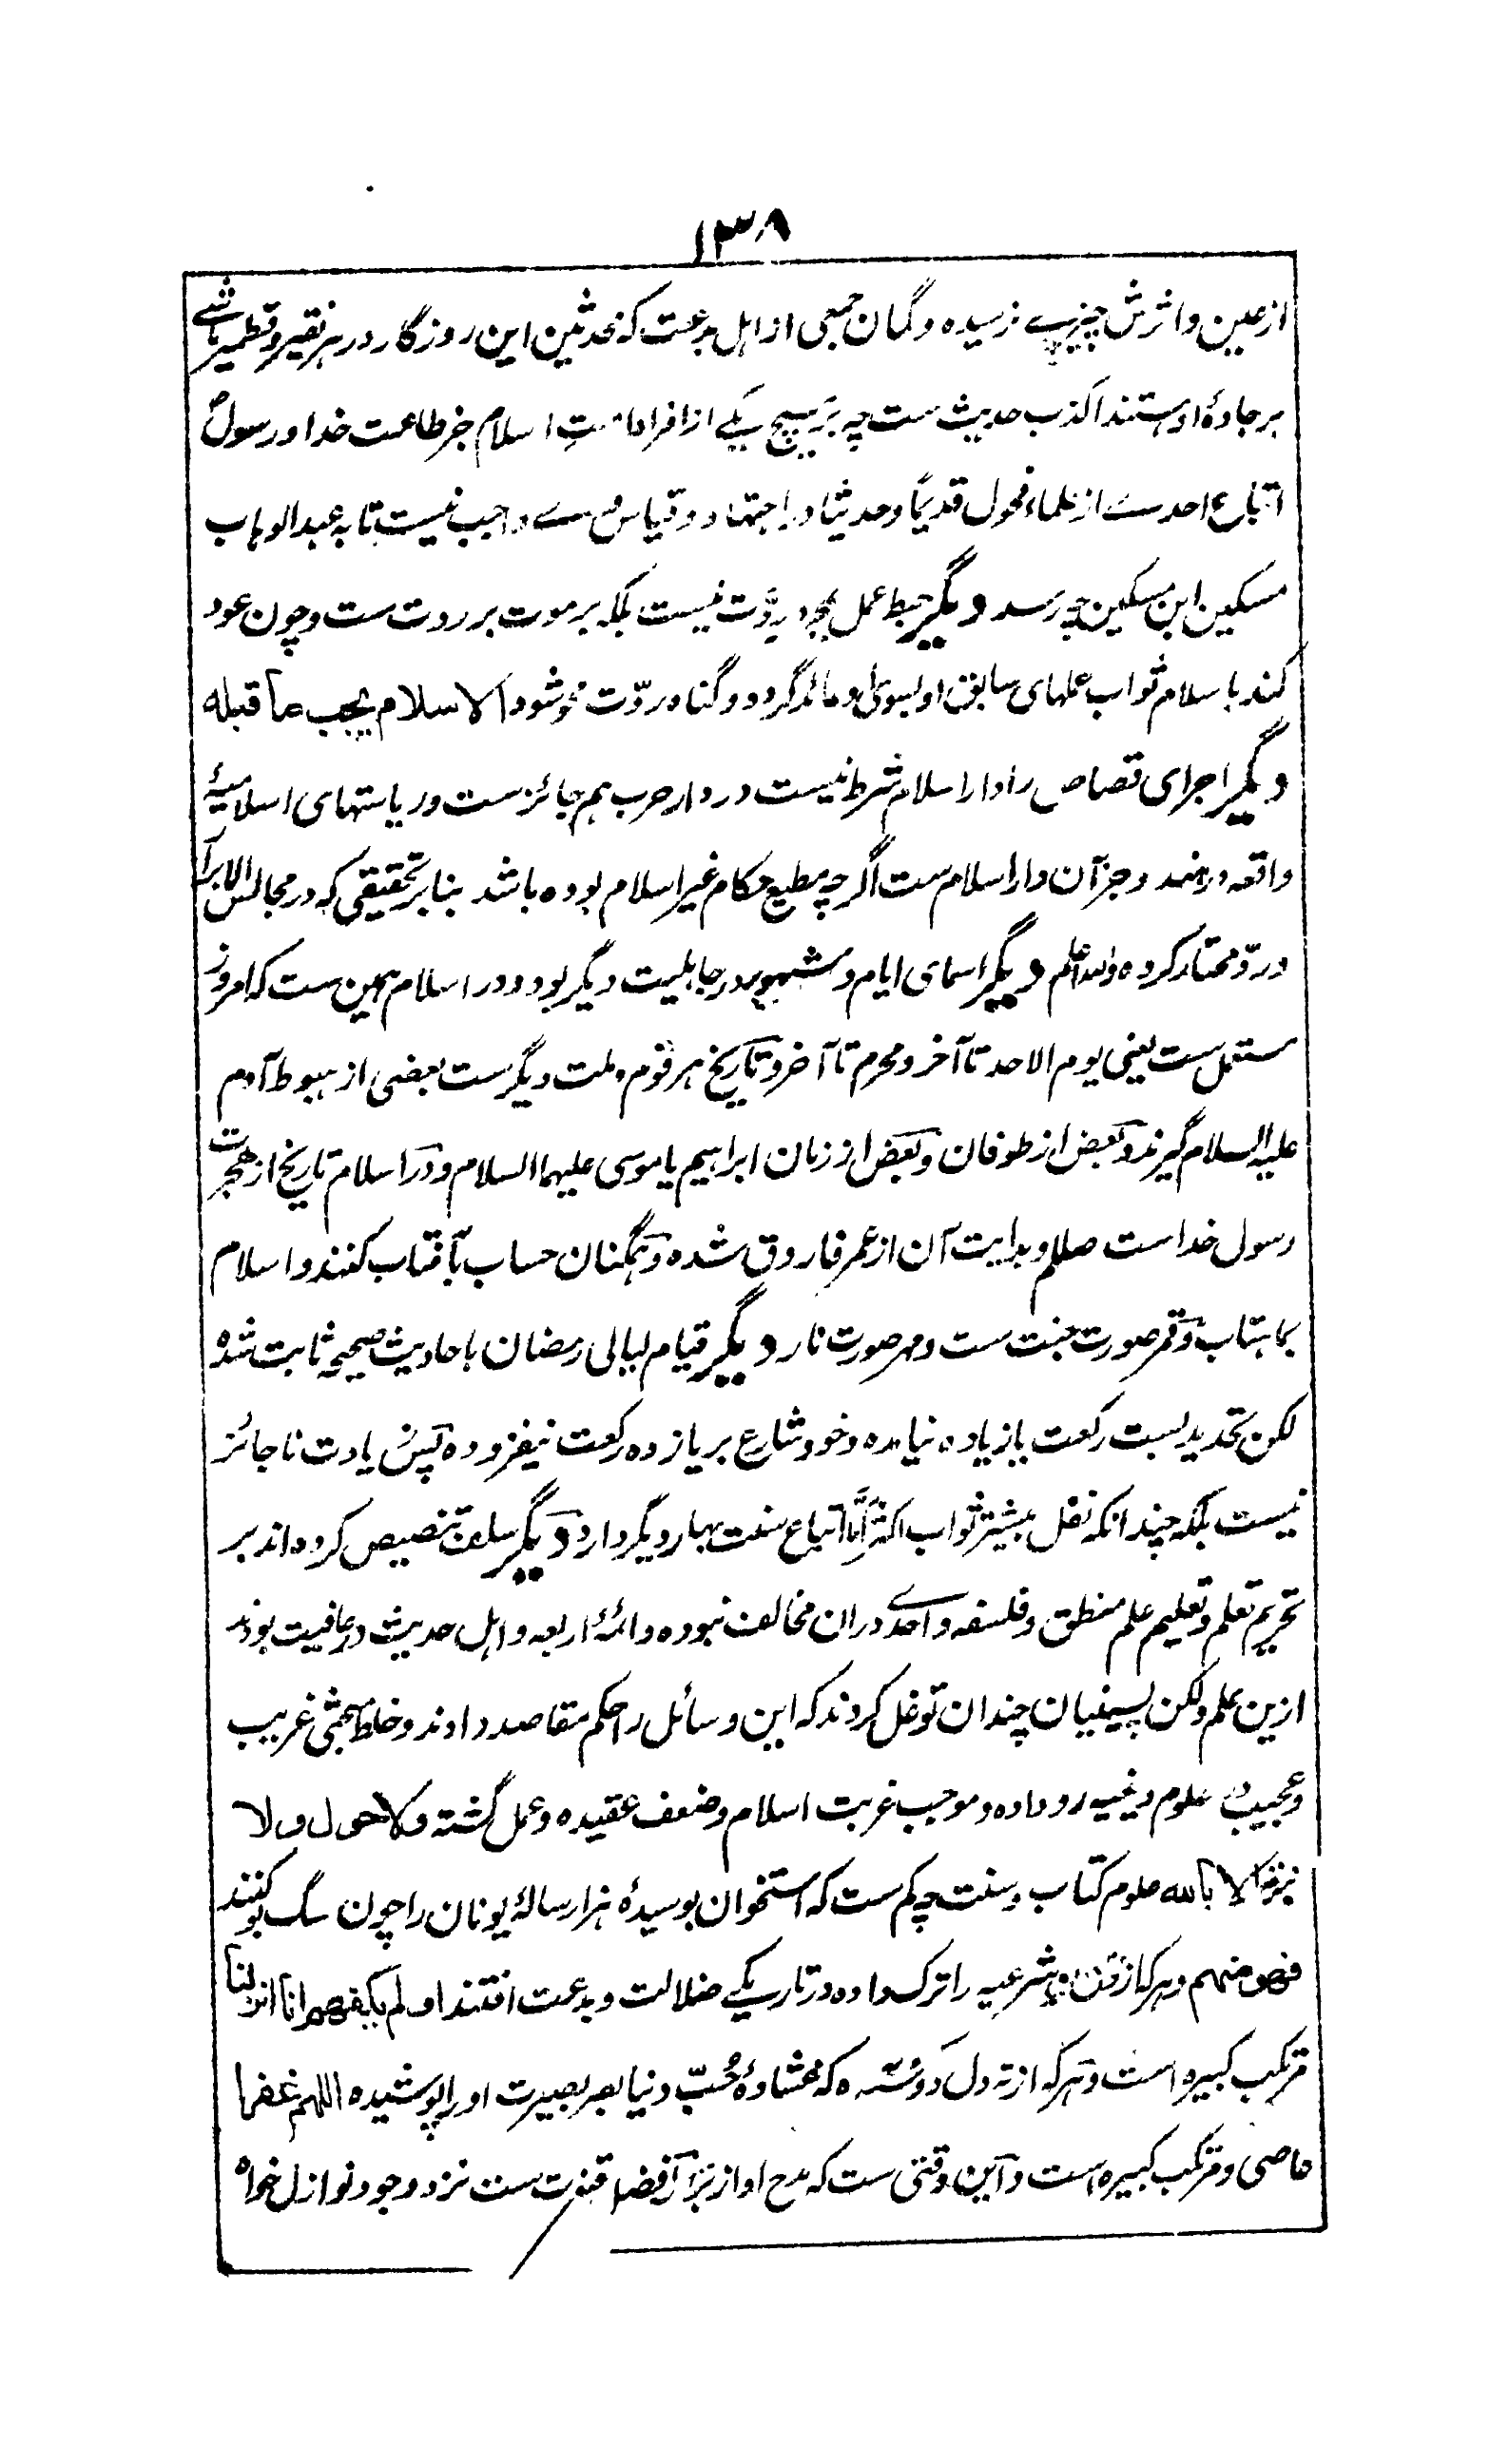 ۱۳۸
از عین و اثرش چیزے نرسیده و گمان جمعی از اهل بدعت که محدثین این روزگار در هر نقیر و قطمیر ماشے
بر جادهٔ او هستند اکذب حدیث ست چه بر هیچ یکے از افراد امتِ اسلام جز طاعت خدا و رسولؐ
اتباع احدے از علماء فحول قدیماً و حدیثاً در اجتهاد و قیاس وے واجب نیست تا به عبدالوهاب
مسکین ابن مسکین چه رسد دیگر حبط عمل بمجرد ردّت نیست بلکه بر موت بر ردت ست و چون عود
کند باسلام ثواب عملهای سابق او بسوئی وعائد گردد و گناه ردّت محو شود الاسلام یجب ما قبله
دیگر اجرای قصاص را دار اسلام شرط نیست در دار حرب هم جائزست و ریاستهای اسلامیهٔ
واقعه در هند و جز آن دار اسلام ست اگرچه مطیع حکام غیر اسلام بوده باشد بنابر تحقیقی که در مجالس الابرار
و رد محتار کرده والله اعلم دیگر اسمای ایام و شهور در جاهلیت دیگر بود و در اسلام همین ست که امروز
مستعمل ست یعنی یوم الاحد تا آخر و محرم تا آخر و تاریخ هر قوم و ملت دیگرست بعضی از هبوط آدم
علیه السلام گیرند و بعض از طوفان و بعض از زمان ابراهیم یا موسی علیهما السلام و در اسلام تاریخ از هجرت
رسول خداست صللم و بدایت آن از عمر فاروق شده و همگنان حساب بآفتاب کنند و اسلام
بماهتاب و قمر صورت جنت ست و مهر صورت نار دیگر قیام لیالی رمضان باحادیث صحیحه ثابت شده
لکن تحدید بست رکعت یا زیاده نیامده و خود شارع بر یازده رکعت نیفزوده پس زیادت ناجائز
نیست بلکه چندانکه نفل بیشتر ثواب اکثر امّا اتباع سنت بهار دیگر دارد دیگر سلف تنصیص کرده اند بر
تحریم تعلم و تعلیم علم منطق و فلسفه و احدے دران مخالف نبوده و ائمهٔ اربعه و اهل حدیث در عافیت بودند
ازین علم ولکن پسینیان چندان توغل کردند که این وسائل را حکم مقاصد دادند و خلط مبحثی غریب
و عجیب در علوم دینیه رو داده و موجب غربت اسلام و ضعف عقیده و عمل گشته و لا حول و لا
قوة الا بالله علوم کتاب و سنت چه کم ست که استخوان بوسیدهٔ هزار سالهٔ یونان را چون سگ بو کنند
فهو منهم و هر که از شرعیه را ترک داده در تاریکے ضلالت و بدعت افتند اولم یکفهم انا انزلنا
مرتکب کبیره است و هر که از ته دل که غشاوهٔ حُبّ دنیا بصر بصیرت او را پوشیده اللهم غفرا
عاصی و مرتکب کبیره است و این وقتی ست که مدح او از ست نزد وجود نوازل خواه